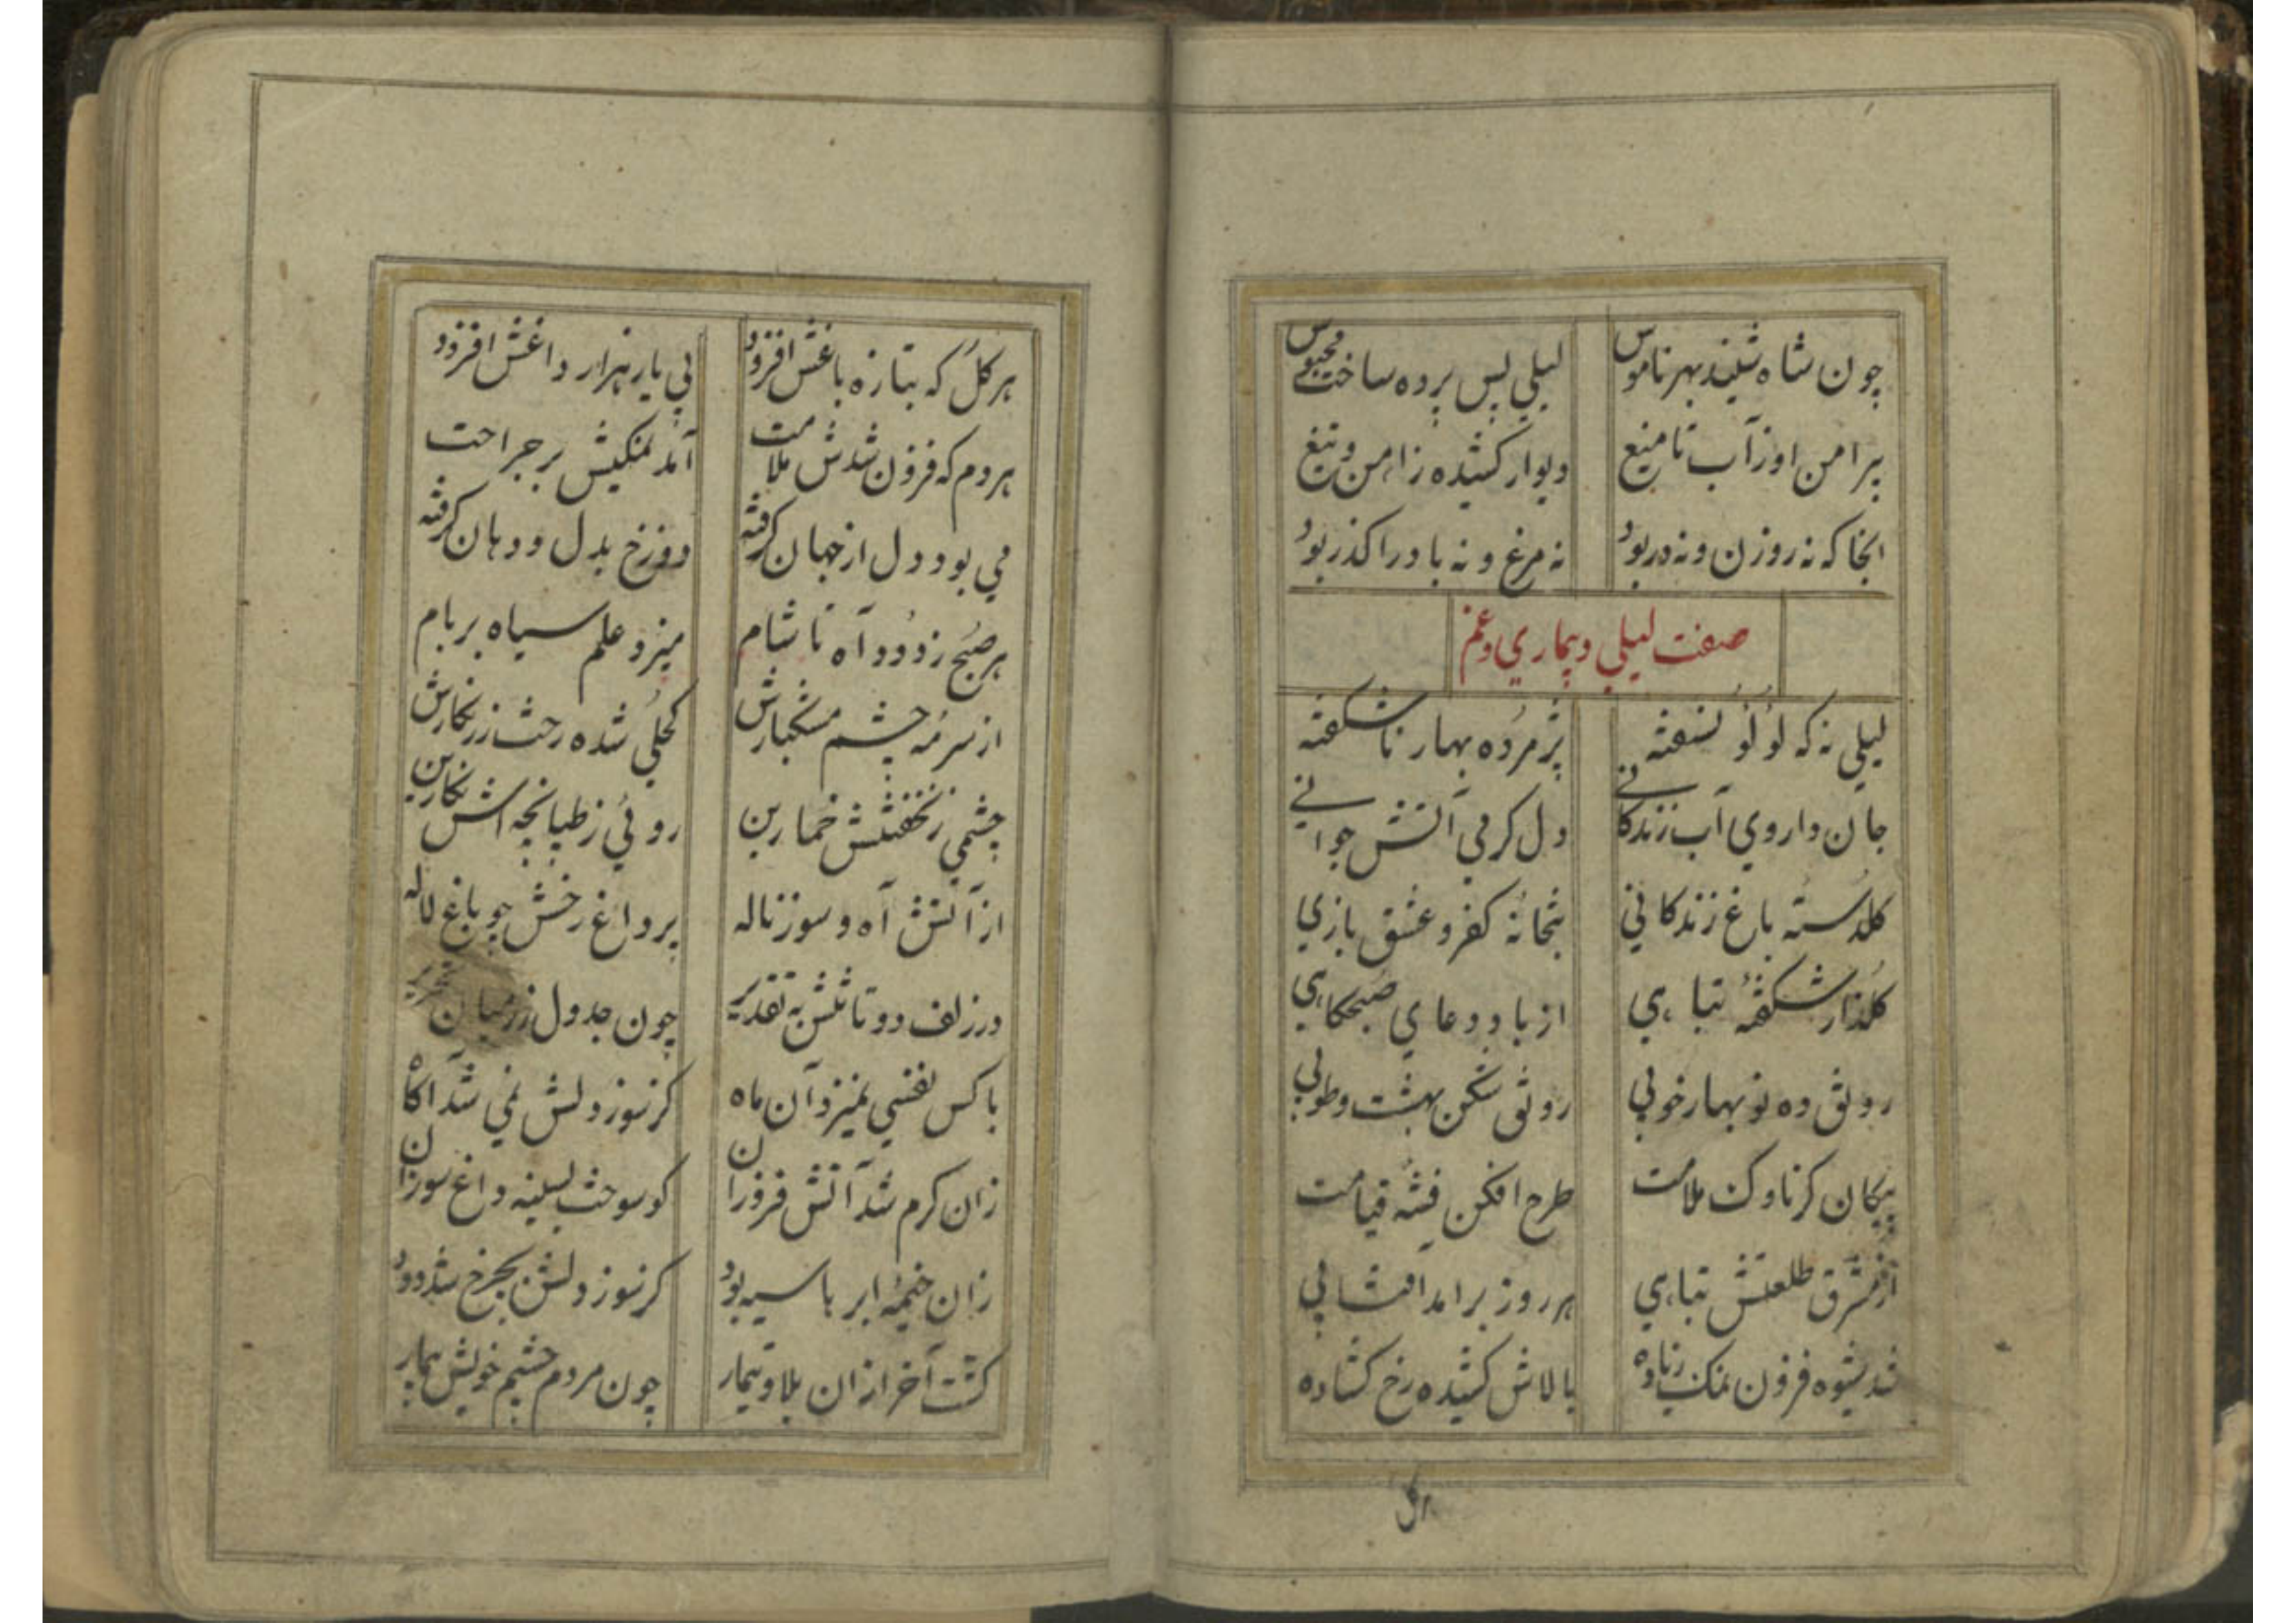 چون شاه شنید بهر ناموس لیلی پس پرده ساخت محبوس
پیرامن او ز آب تا میغ دیوار کشیده ز اهن و تیغ
انجا که نه روزن و نه در بود نه مرغ و نه باد را کذر بود
صفت لیلی و بیماری و غم
لیلی نه که لؤلؤ نسفته پژمرده بهار ناشکفته
جان داروی آب زندکانی دل کرمی آتش جوانی
کلدسته باغ زندکانی بتخانهٔ کفر و عشق بازی
کلذار شکفتهٔ تباهی از باد و دعای صبحکاهی
رونق ده نو بهار خوبی رونق شکن بهشت و طوبی
پیکان کر ناوک ملامت طرح افکن فتنه قیامت
از مشرق طلعتش تباهی هر روز برامد افتابی
شد شیوه فزون نمک زیاده بالاش کشیده رخ کشاده
هر کل
هر کل که بتازه باغش افزود بی یار هزار داغش افزود
هر دم که فزون شدش ملامت آمد نمکیش بر جراحت
می بود دل از جهان کرفته دوزخ بدل و دهان کرفته
هر صبح ز دود آه تا شام میزد علم سیاه بر بام
از سرمه چشم مشکبارش کحلی شده رخت زرنکارش
چشمی ز نخفتنش خمارین روئی ز طپانچه اش نکارین
از آتش آه و سوز ناله پر داغ رخش چو باغ لاله
در زلف دو تا تنش به تقدیر چون جدول زر میان تحریر
با کس نفسی نمیزد آن ماه کز سوز دلش نمی شد آکاه
زان کرم شد آتش فروزان کو سوخت بسینه داغ سوزان
زان خیمهٔ ابرها سیه بود کز سوز دلش بچرخ شد دود
کشت آخر ازان بلا و تیمار چون مردم چشم خویش بیمار